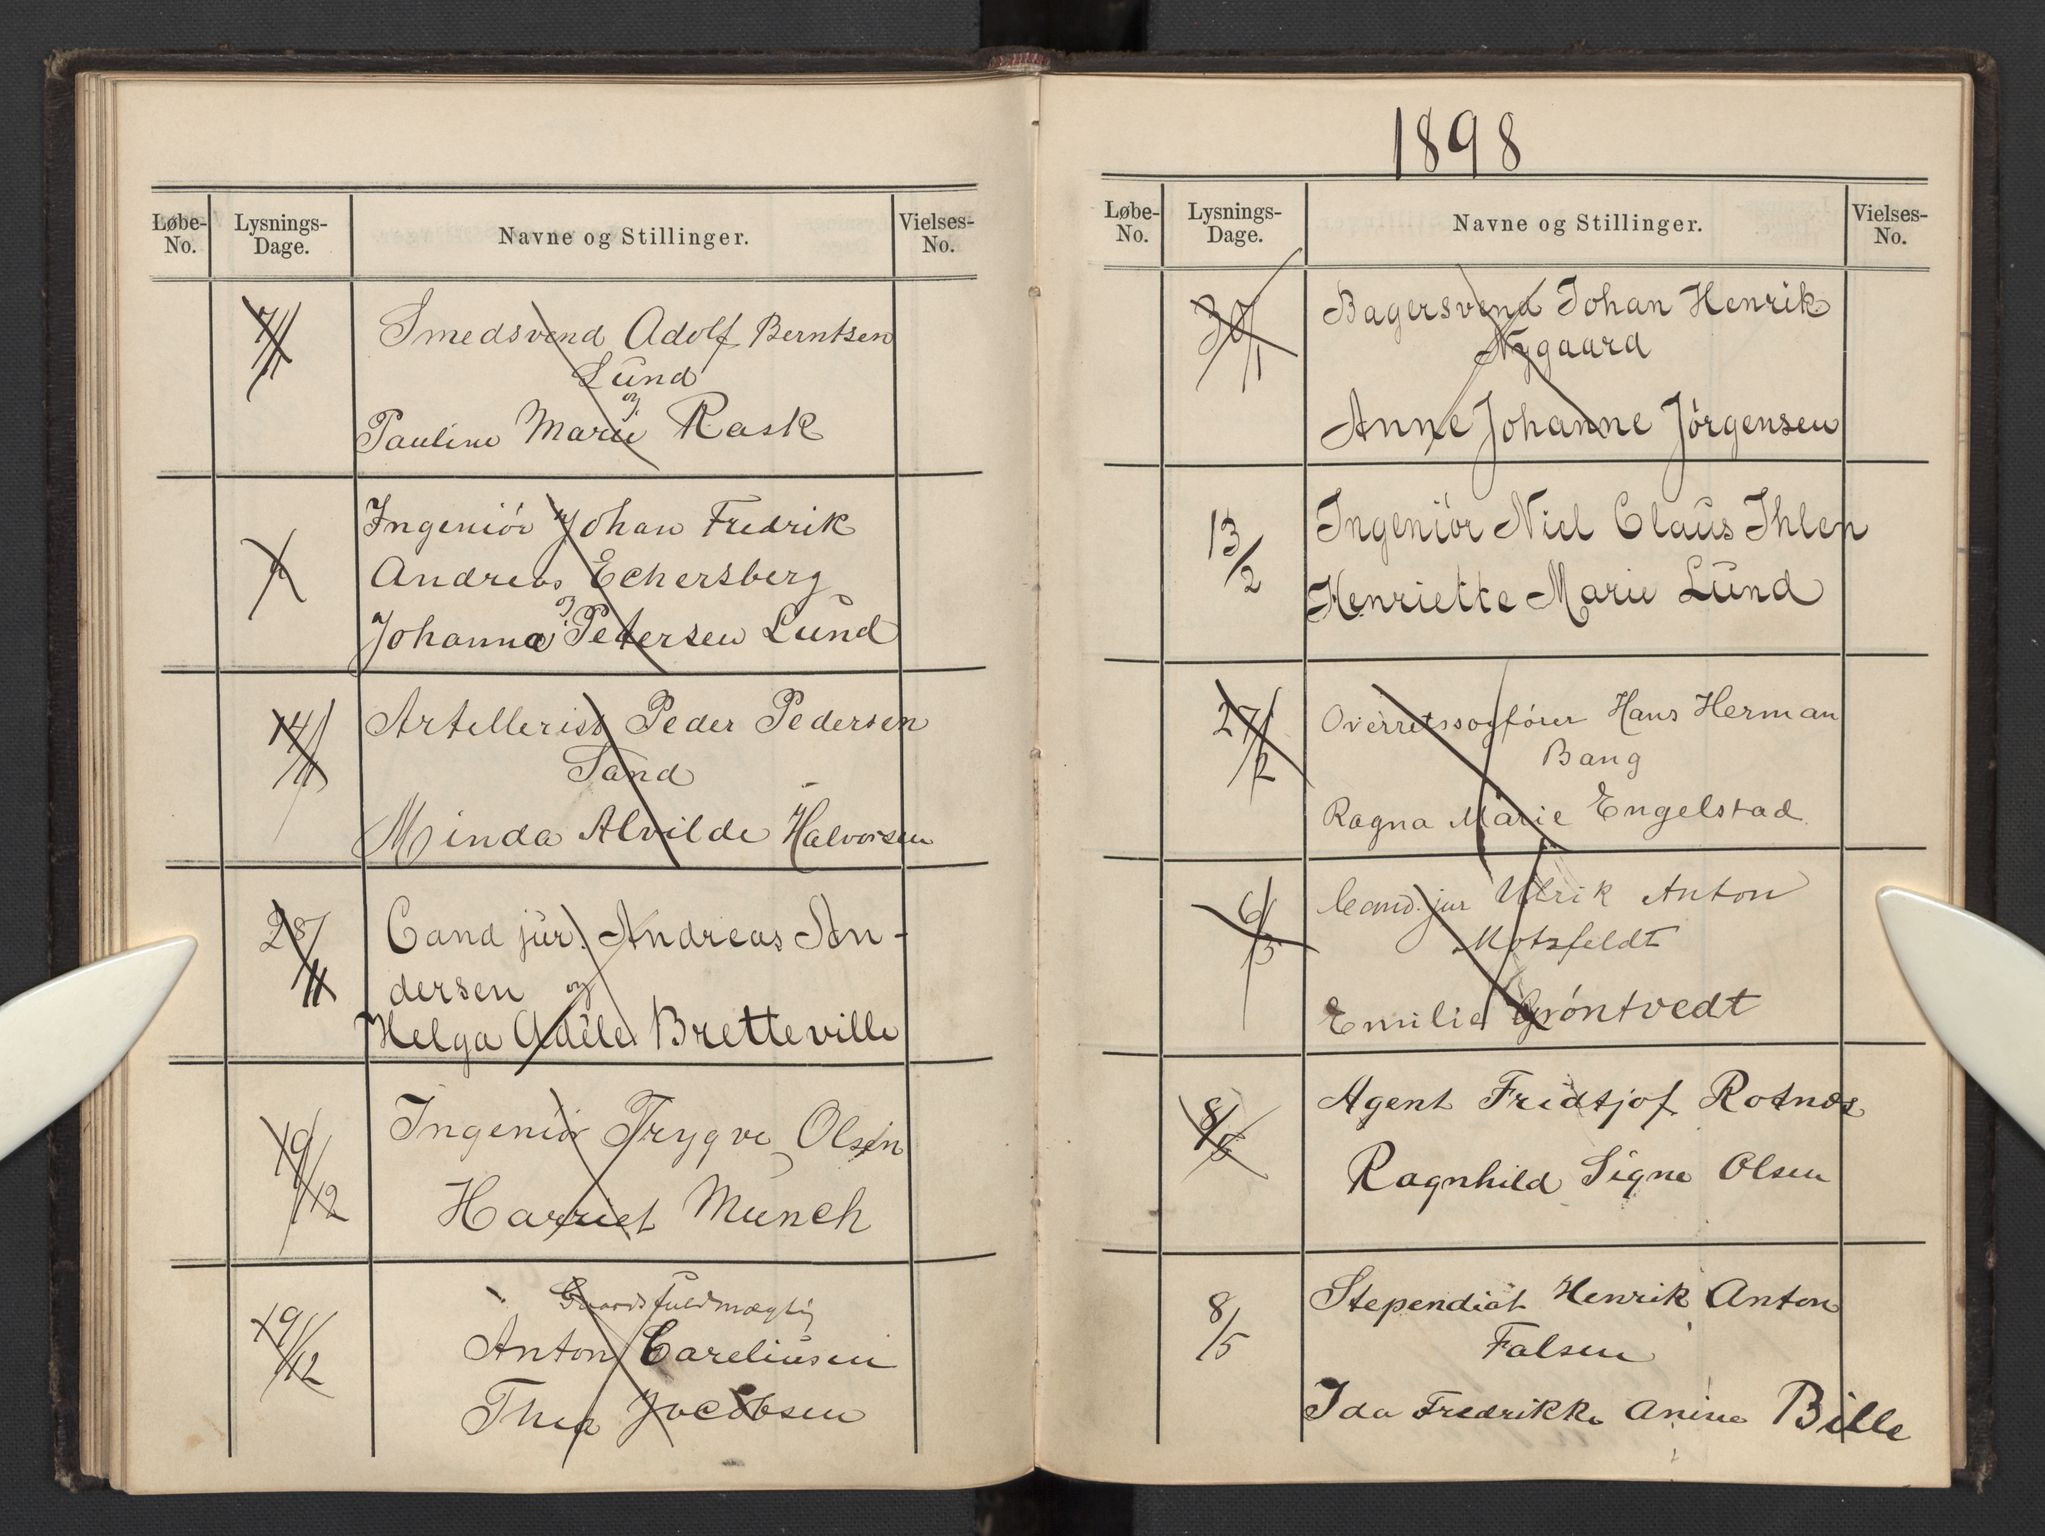 Løbe-No. Lysnings-Dage. Navne og Stillinger. Vielses-No.
7/11 Smedsvend Adolf Berntsen
Lund
og
Pauline Marie Rask
Ingeniör Johan Fredrik
Andreas Echersberg
og
Johanna Petersen Lund
14/11 Artellerist Peder Pedersen
Sand
Minda Alvilde Halvorsen
28/11 Cand jur. Andreas An-
dersen og
Helga Adèle Bretteville
19/12 Ingeniör Trygve Olsen
Harriet Munch
Gaardsfuldmægtig
19/12 Anton Careliusen
Thea Jacobsen
1898
Løbe-No. Lysnings-Dage. Navne og Stillinger. Vielses-No.
30/1 Bagersvend Johan Henrik
Nygaard
Anne Johanne Jörgensen
13/2 Ingeniör Niel Claus Ihlen
Henriette Marie Lund
27/2 Overretssagförer Hans Herman
Bang
Ragna Marie Engelstad
6/3 Cand. jur Ulrik Anton
Motzfeldt
Emilie Gröntvedt
8/5 Agent Fridtjof Rotnæs
Ragnhild Signe Olsen
8/5 Stependiat Henrik Anton
Falsen
Ida Fredrikke Anine Bille